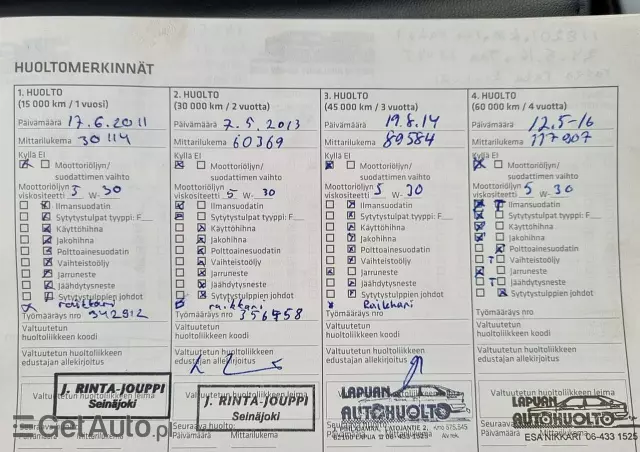 HUOLTOMERKINNÄT
1. HUOLTO
(15 000 km / 1 vuosi)
Päivämäärä 17.6.2011
Mittarilukema 30114
Kyllä EI
Moottoriöljyn/
suodattimen vaihto
Moottoriöljyn
viskositeetti 5 W- 30
Ilmansuodatin
Sytytystulpat tyyppi: F
Käyttöhihna
Jakohihna
Polttoainesuodatin
Vaihteistoöljy
Jarruneste
Jäähdytysneste
Sytytystulppien johdot
raikkari
Työmääräys nro 342812
Valtuutetun
huoltoliikkeen koodi
Valtuutetun huoltoliikkeen
edustajan allekirjoitus
Valtuutetun huoltoliikkeen leima
J. RINTA-JOUPPI
Seinäjoki
Seuraava huolto:
Päivämäärä Mittarilukema
2. HUOLTO
(30 000 km / 2 vuotta)
Päivämäärä 7.5.2013
Mittarilukema 60369
Kyllä EI
Moottoriöljyn/
suodattimen vaihto
Moottoriöljyn
viskositeetti 5 W- 30
Ilmansuodatin
Sytytystulpat tyyppi: F
Käyttöhihna
Jakohihna
Polttoainesuodatin
Vaihteistoöljy
Jarruneste
Jäähdytysneste
Sytytystulppien johdot
raikkari
Työmääräys nro 356758
Valtuutetun
huoltoliikkeen koodi
Valtuutetun huoltoliikkeen
edustajan allekirjoitus
Valtuutetun huoltoliikkeen leima
J. RINTA-JOUPPI
Seinäjoki
Seuraava huolto:
Päivämäärä Mittarilukema
3. HUOLTO
(45 000 km / 3 vuotta)
Päivämäärä 19.8.14
Mittarilukema 89584
Kyllä EI
Moottoriöljyn/
suodattimen vaihto
Moottoriöljyn
viskositeetti 5 W- 30
Ilmansuodatin
Sytytystulpat tyyppi: F
Käyttöhihna
Jakohihna
Polttoainesuodatin
Vaihteistoöljy
Jarruneste
Jäähdytysneste
Sytytystulppien johdot
Raikkari
Työmääräys nro
Valtuutetun
huoltoliikkeen koodi
Valtuutetun huoltoliikkeen
edustajan allekirjoitus
LAPUAN
AUTOHUOLTO
4. HUOLTO
(60 000 km / 4 vuotta)
Päivämäärä 12.5-16
Mittarilukema 117907
Kyllä EI
Moottoriöljyn/
suodattimen vaihto
Moottoriöljyn
viskositeetti 5 W- 30
Ilmansuodatin
Sytytystulpat tyyppi: F
Käyttöhihna
Jakohihna
Polttoainesuodatin
Vaihteistoöljy
Jarruneste
Jäähdytysneste
Sytytystulppien johdot
Työmääräys nro
Valtuutetun
huoltoliikkeen koodi
Valtuutetun huoltoliikkeen
edustajan allekirjoitus
Valtuutetun huoltoliikkeen leima
LAPUAN
AUTOHUOLTO
ESA NIKKARI 06-433 1525
Päivämäärä Mittarilukema
GetAuto.pl